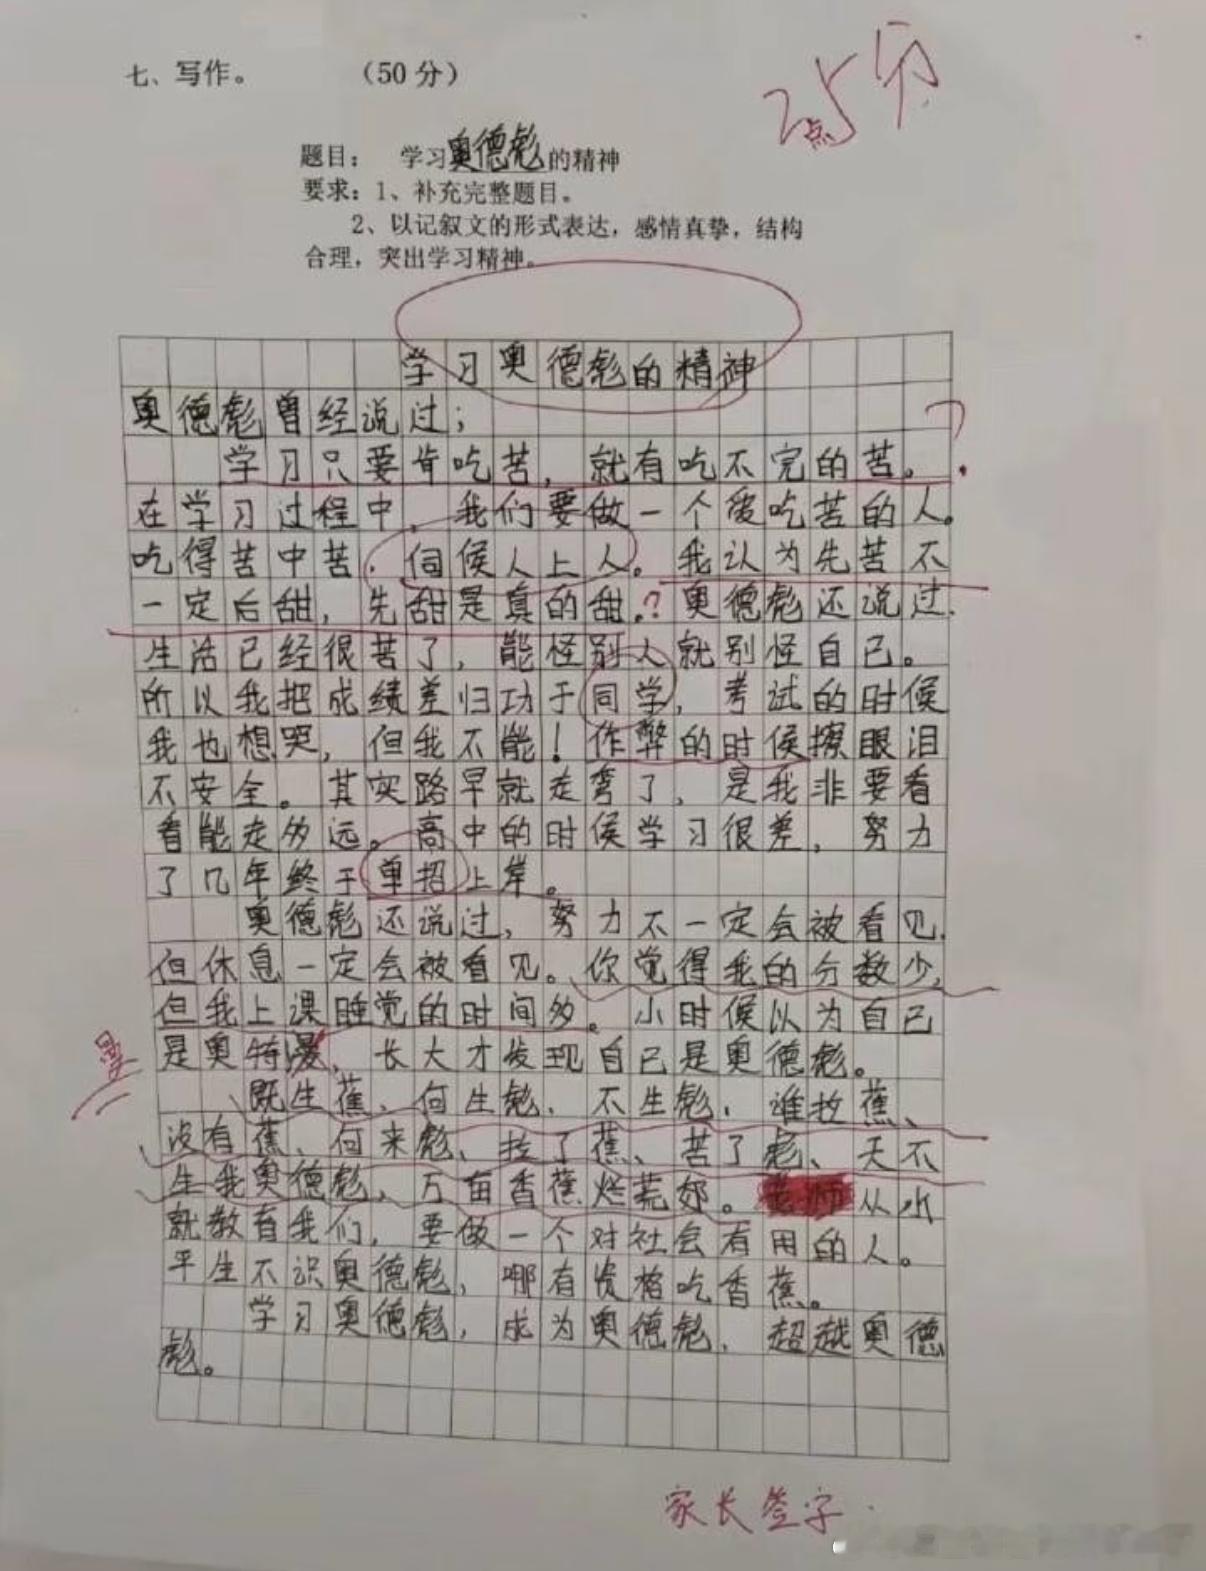 七、写作。 （50分）
2.5分
点
题目： 学习奥德彪的精神
要求：1、补充完整题目。
2、以记叙文的形式表达，感情真挚，结构
合理，突出学习精神。
学习奥德彪的精神
奥德彪曾经说过；
？
学习只要肯吃苦，就有吃不完的苦。
在学习过程中，我们要做一个爱吃苦的人。
吃得苦中苦.伺候人上人。我认为先苦不
一定后甜，先甜是真的甜.？奥德彪还说过.
生活已经很苦了，能怪别人就别怪自己。
所以我把成绩差归功于同学，考试的时候
我也想哭，但我不能！作弊的时候擦眼泪
不安全。其实路早就走弯了，是我非要看
看能走多远。高中的时候学习很差，努力
了几年终于单招上岸。
奥德彪还说过，努力不一定会被看见.
但休息一定会被看见。你觉得我的分数少，
但我上课睡觉的时间多。小时候以为自己
是奥特漫，长大才发现自己是奥德彪。
曼
既生蕉、何生彪、不生彪，谁拉蕉、
没有蕉、何来彪、拉了蕉、苦了彪、天不
生我奥德彪，万亩香蕉烂荒郊。老师从小
就教育我们，要做一个对社会有用的人。
平生不识奥德彪，哪有资格吃香蕉。
学习奥德彪，成为奥德彪，超越奥德
彪。
家长签字